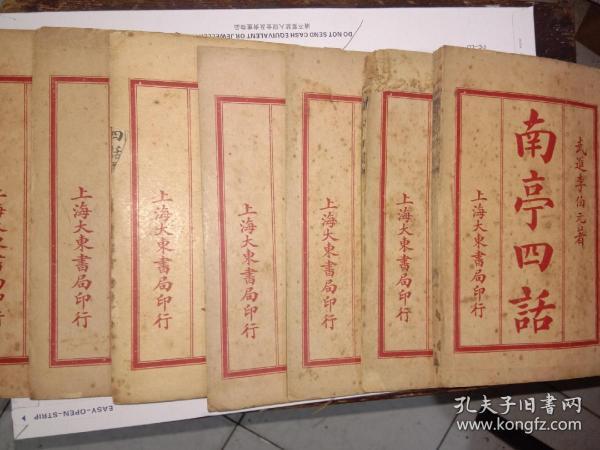 請不要放入現金及貴重物品
DO NOT SEND CASH EQUIVALENT OR JEWELLERY
武進李伯元著
南亭四話
上海大東書局印行
上海大東書局印行
上海大東書局印行
上海大東書局印行
上海大東書局印行
四話
上海大東書局印行
局印行
EASY-OPEN-STRIP
孔夫子旧书网
www.kongfz.com